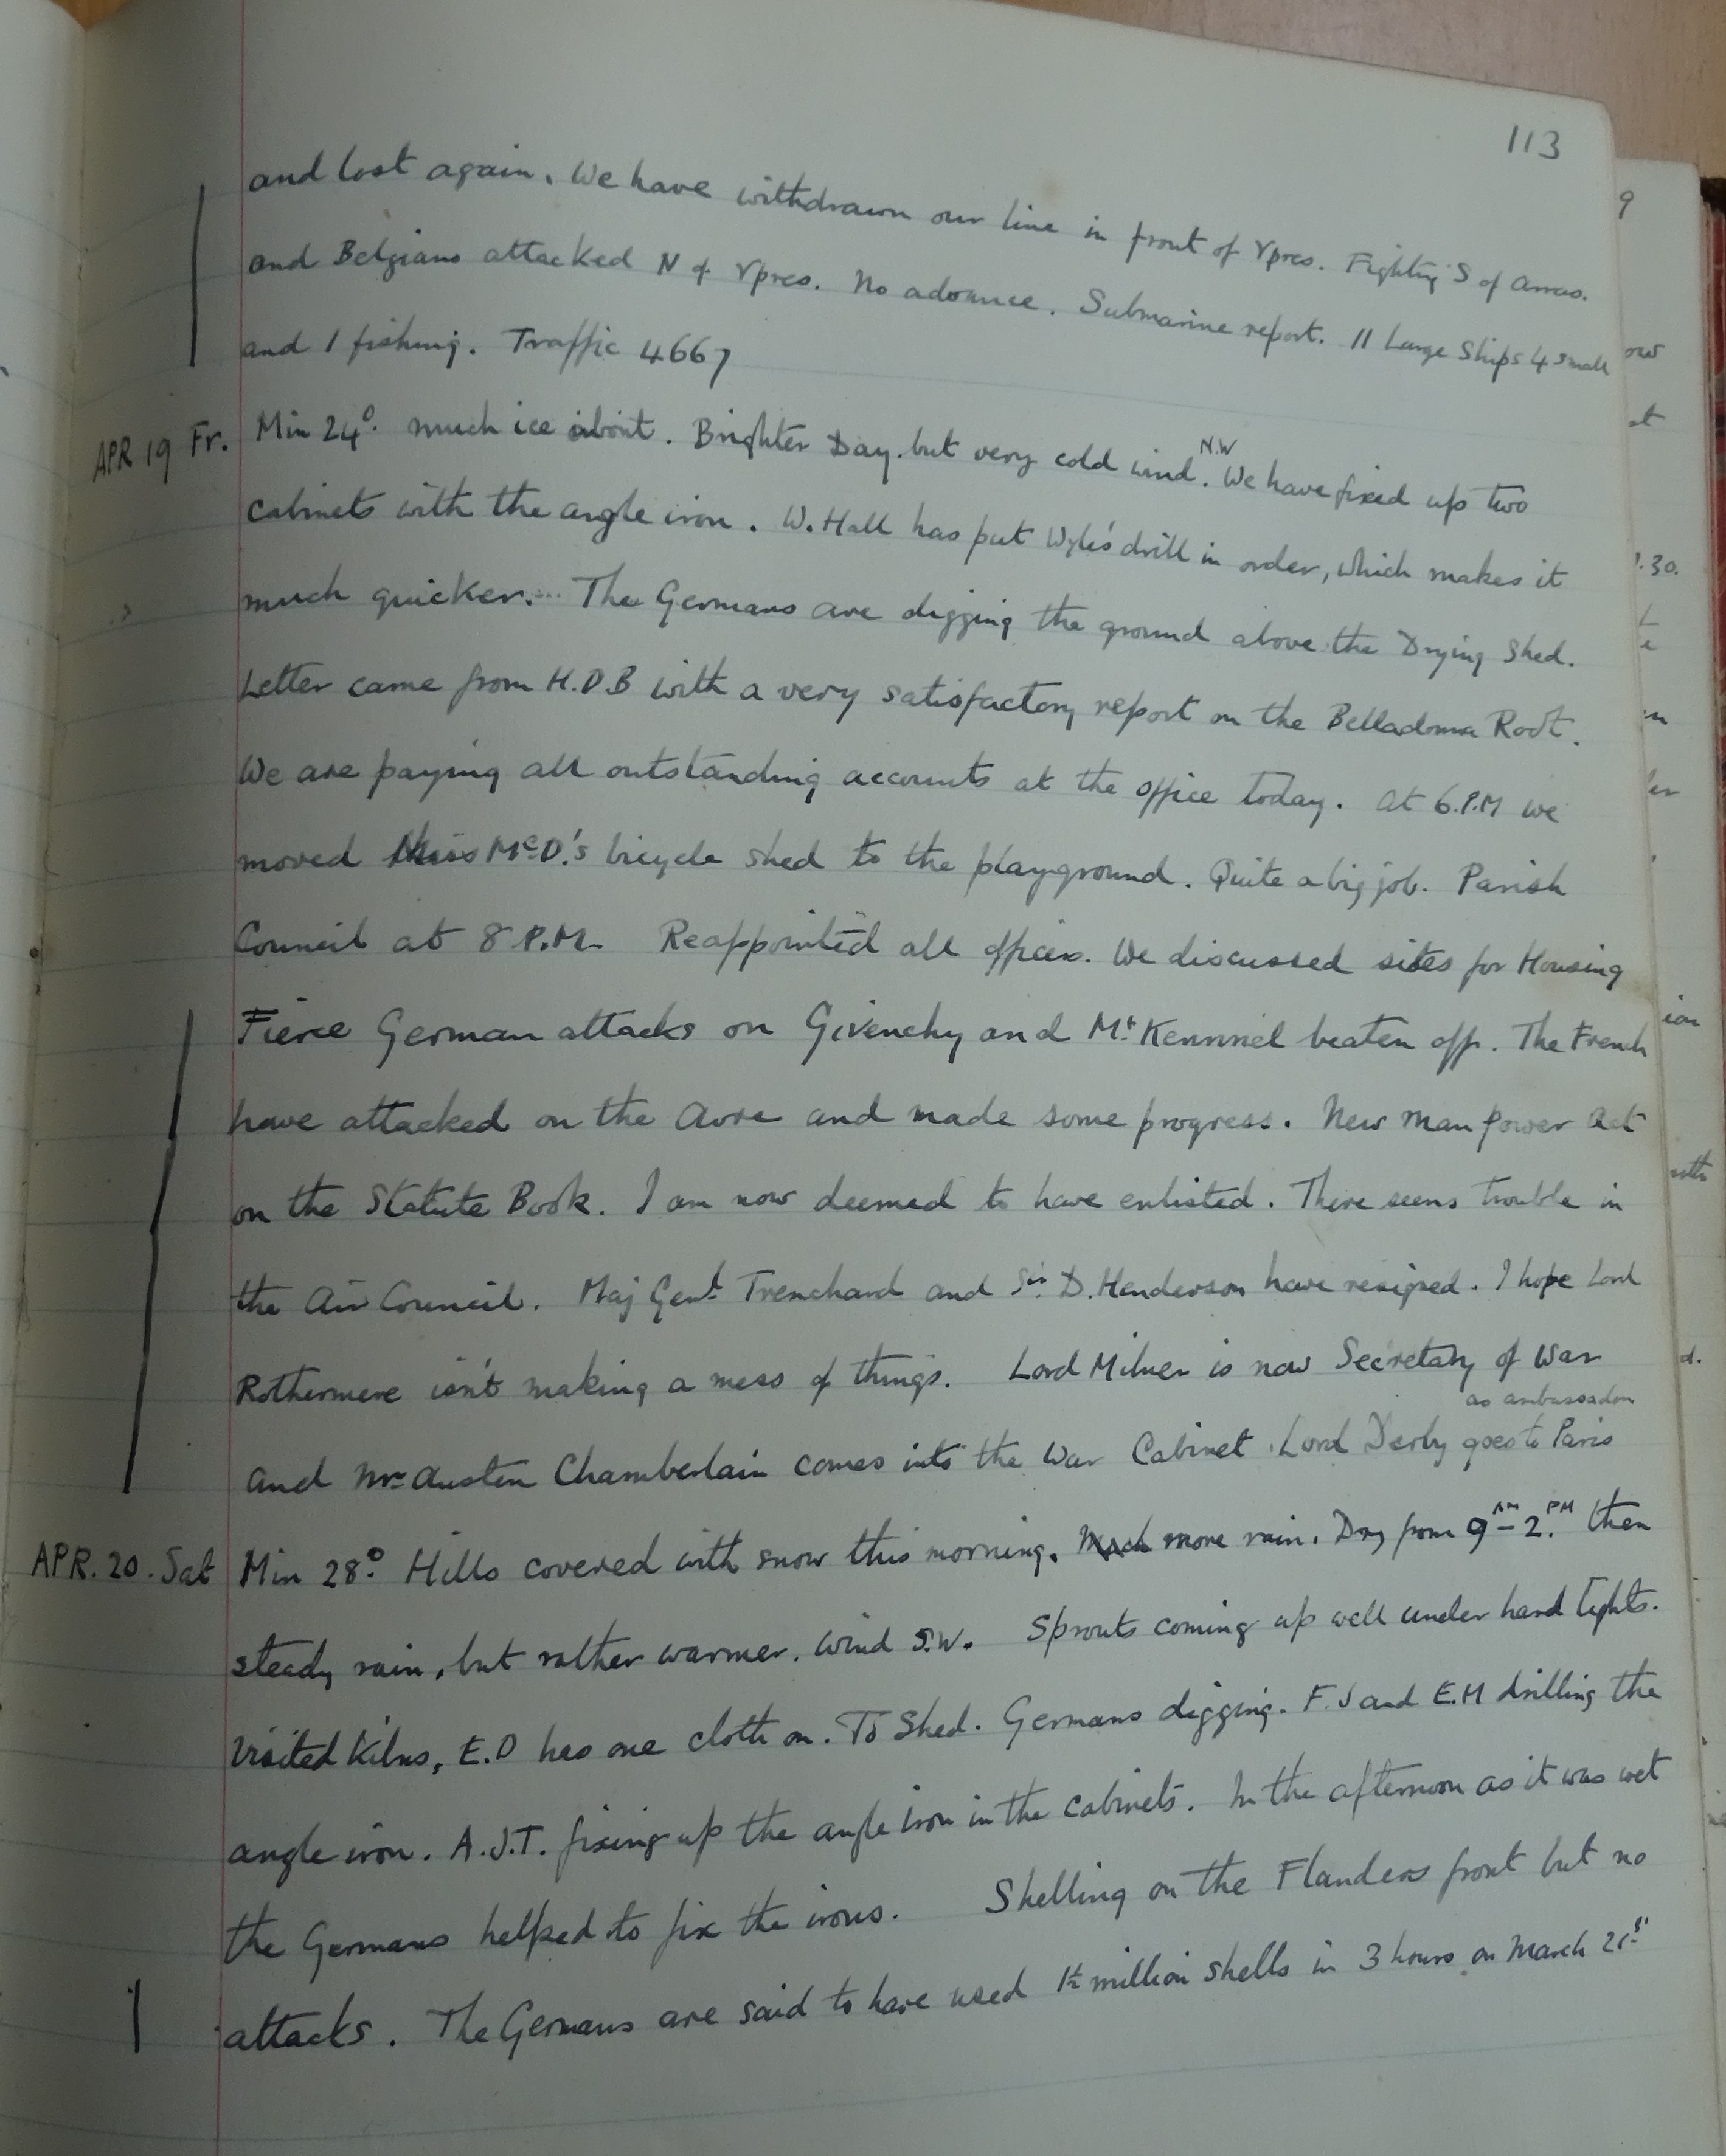 113
and lost again. We have withdrawn our line in front of Ypres. Fighting S of Arras.
and Belgians attacked N of Ypres. No advance. Submarine report. 11 Large Ships 4 small
and 1 fishing. Traffic 4667
APR 19 Fr. Min 24° much ice about. Brighter Day. but very cold wind. N.W We have fixed up two
cabinets with the angle iron. W. Hall has put Wyle's drill in order, which makes it
much quicker. The Germans are digging the ground above the Drying Shed.
Letter came from H.D.B with a very satisfactory report on the Belladonna Root.
We are paying all outstanding accounts at the office today. At 6.P.M we
moved Miss McD's bicycle shed to the playground. Quite a big job. Parish
Council at 8 P.M. Reappointed all officers. We discussed sites for Housing
Fierce German attacks on Givenchy and Mt Kemmel beaten off. The French
have attacked on the Avre and made some progress. New Man Power Act
on the Statute Book. I am now deemed to have enlisted. There seems trouble in
the Air Council. Maj Genl Trenchard and Sir D. Henderson have resigned. I hope Lord
Rothermere isn't making a mess of things. Lord Milner is now Secretary of War
and Mr Austen Chamberlain comes into the War Cabinet. Lord Derby goes to Paris as ambassador
APR. 20. Sat Min 28° Hills covered with snow this morning. Much more rain. Dry from 9 AM - 2. PM then
steady rain, but rather warmer. Wind S.W. Sprouts coming up well under hand lights.
Visited Kilns, E.D has one cloth on. To Shed. Germans digging. F.J and E.M drilling the
angle iron. A.J.T. fixing up the angle iron in the cabinets. In the afternoon as it was wet
the Germans helped to fix the irons. Shelling on the Flanders front but no
attacks. The Germans are said to have used 1½ million shells in 3 hours on March 21st
9
ow
at
.30.